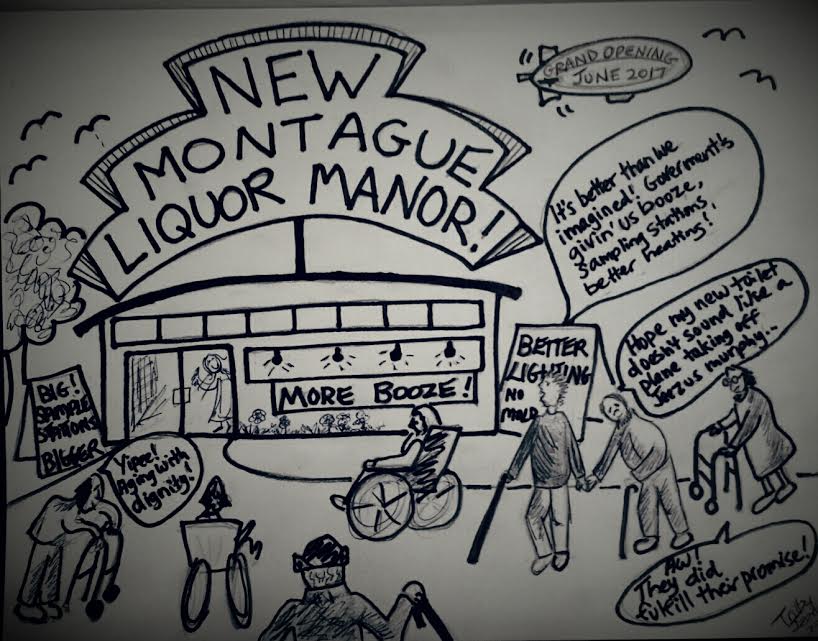 GRAND OPENING
JUNE 2017
NEW
MONTAGUE
LIQUOR MANOR!
It's better than we
imagined! Goverment's
givin' us booze,
Sampling Stations,
better heating!
Hope my new toilet
doesn't sound like a
plane taking off
Jarzus murphy...
BETTER
LIGHTING
NO
MOLD
MORE BOOZE!
BIG!
SAMPLE
STATIONS
BIGGER
Yipee!
Aging with
dignity!
AW!
They did
fulfill their promise!